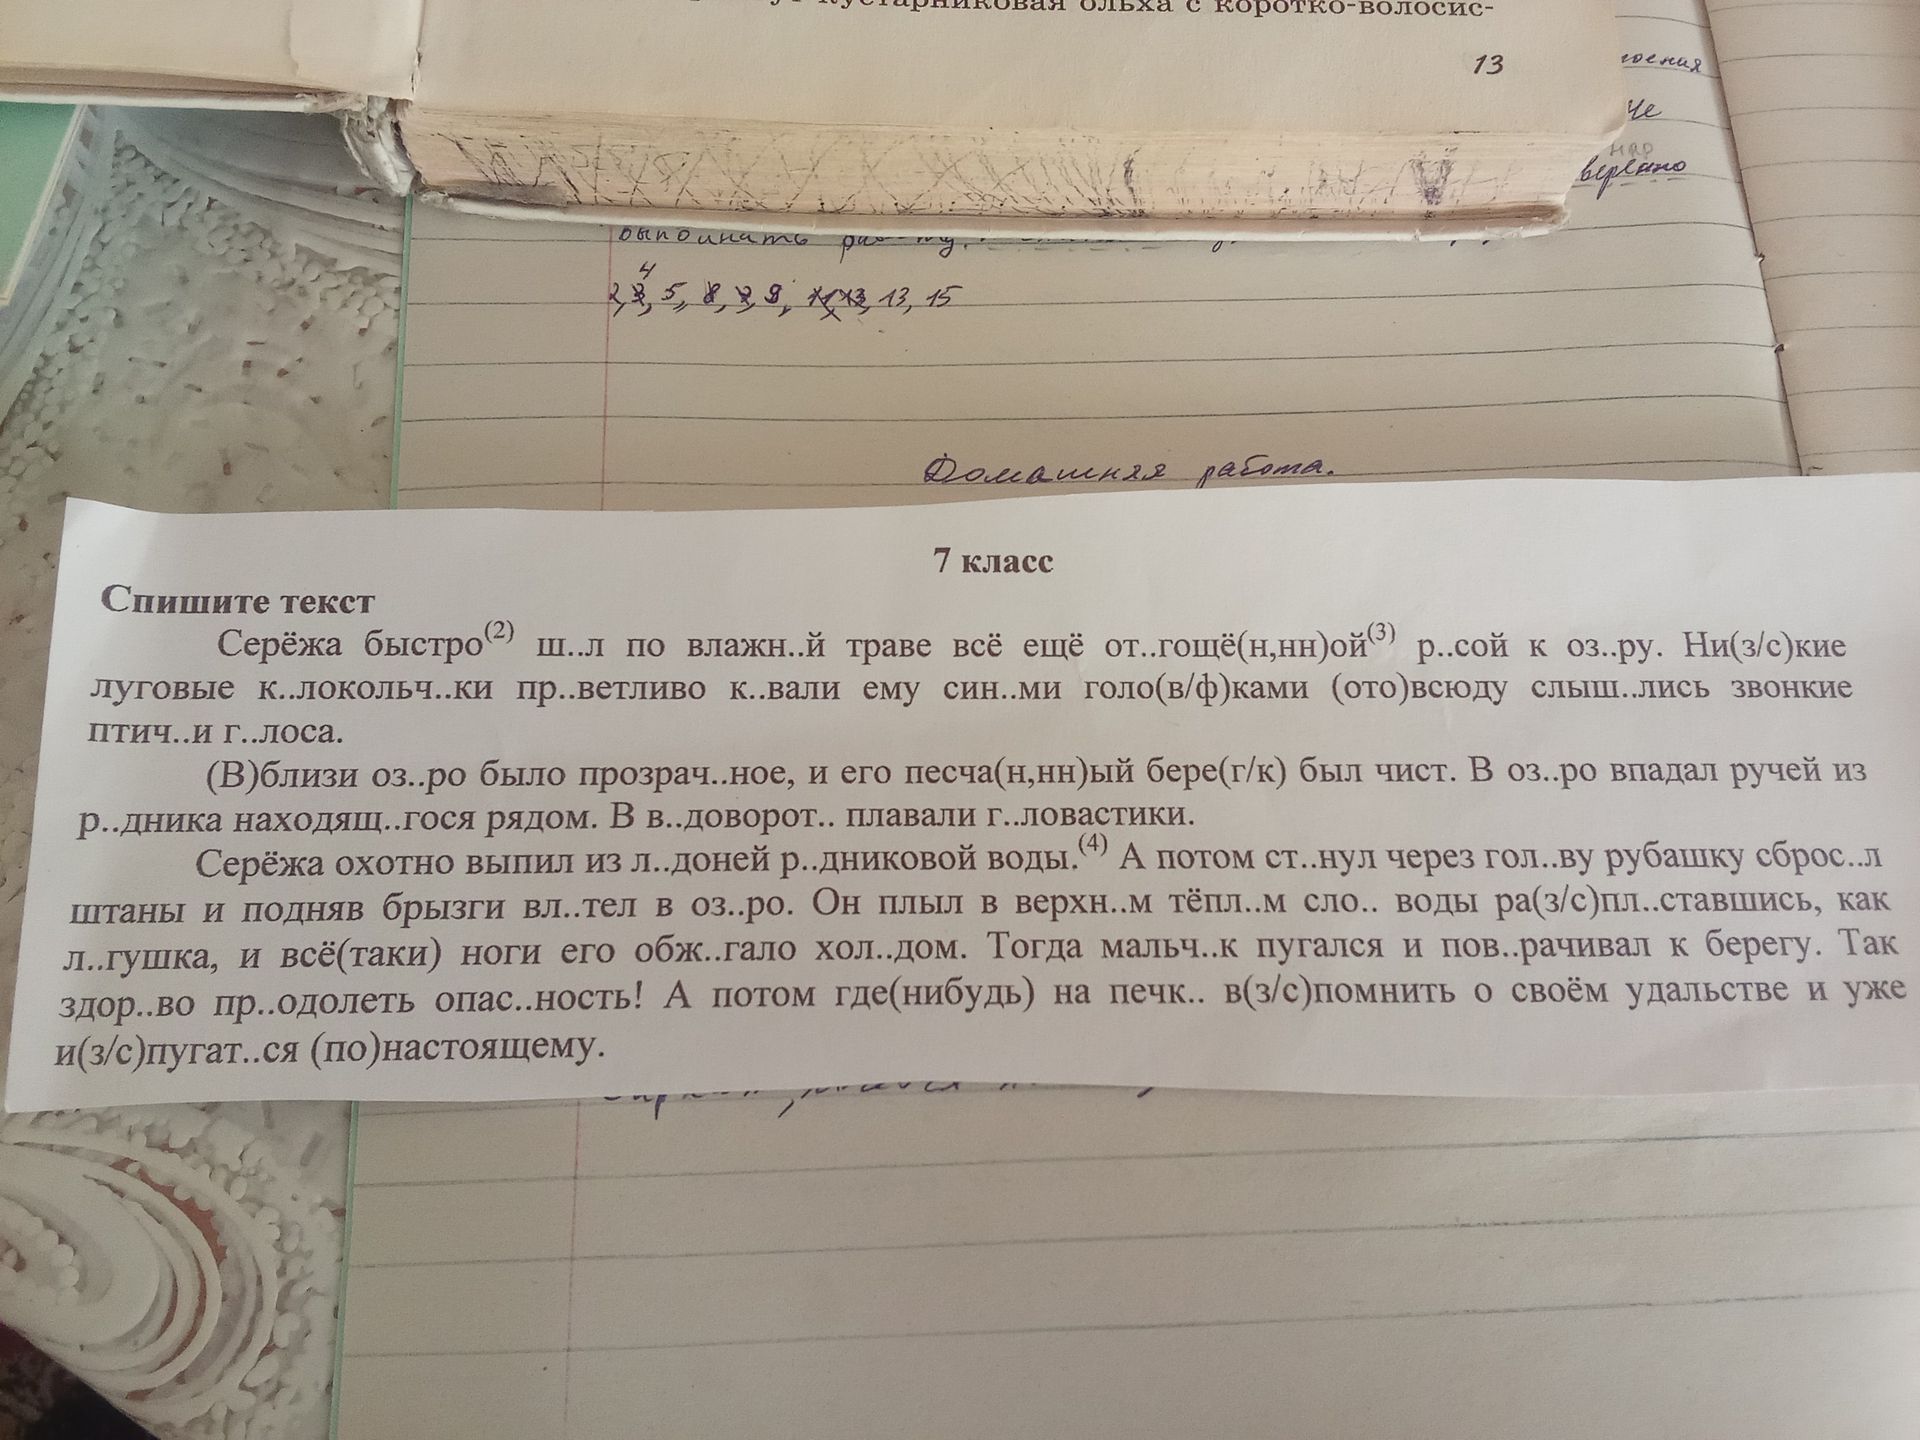 кустарниковая ольха с коротко-волосис-
13
не
нар
веренно
выполнать
4
2, 3, 5, 8, 7, 9, 11, 13, 13, 15
Домашняя работа.
7 класс
Спишите текст
Серёжа быстро(2) ш..л по влажн..й траве всё ещё от..гощё(н,нн)ой(3) р..сой к оз..ру. Ни(з/с)кие
луговые к..локольч..ки пр..ветливо к..вали ему син..ми голо(в/ф)ками (ото)всюду слыш..лись звонкие
птич..и г..лоса.
(В)близи оз..ро было прозрач..ное, и его песча(н,нн)ый бере(г/к) был чист. В оз..ро впадал ручей из
р..дника находящ..гося рядом. В в..доворот.. плавали г..ловастики.
Серёжа охотно выпил из л..доней р..дниковой воды.(4) А потом ст..нул через гол..ву рубашку сброс..л
штаны и подняв брызги вл..тел в оз..ро. Он плыл в верхн..м тёпл..м сло.. воды ра(з/с)пл..ставшись, как
л..гушка, и всё(таки) ноги его обж..гало хол..дом. Тогда мальч..к пугался и пов..рачивал к берегу. Так
здор..во пр..одолеть опас..ность! А потом где(нибудь) на печк.. в(з/с)помнить о своём удальстве и уже
и(з/с)пугат..ся (по)настоящему.